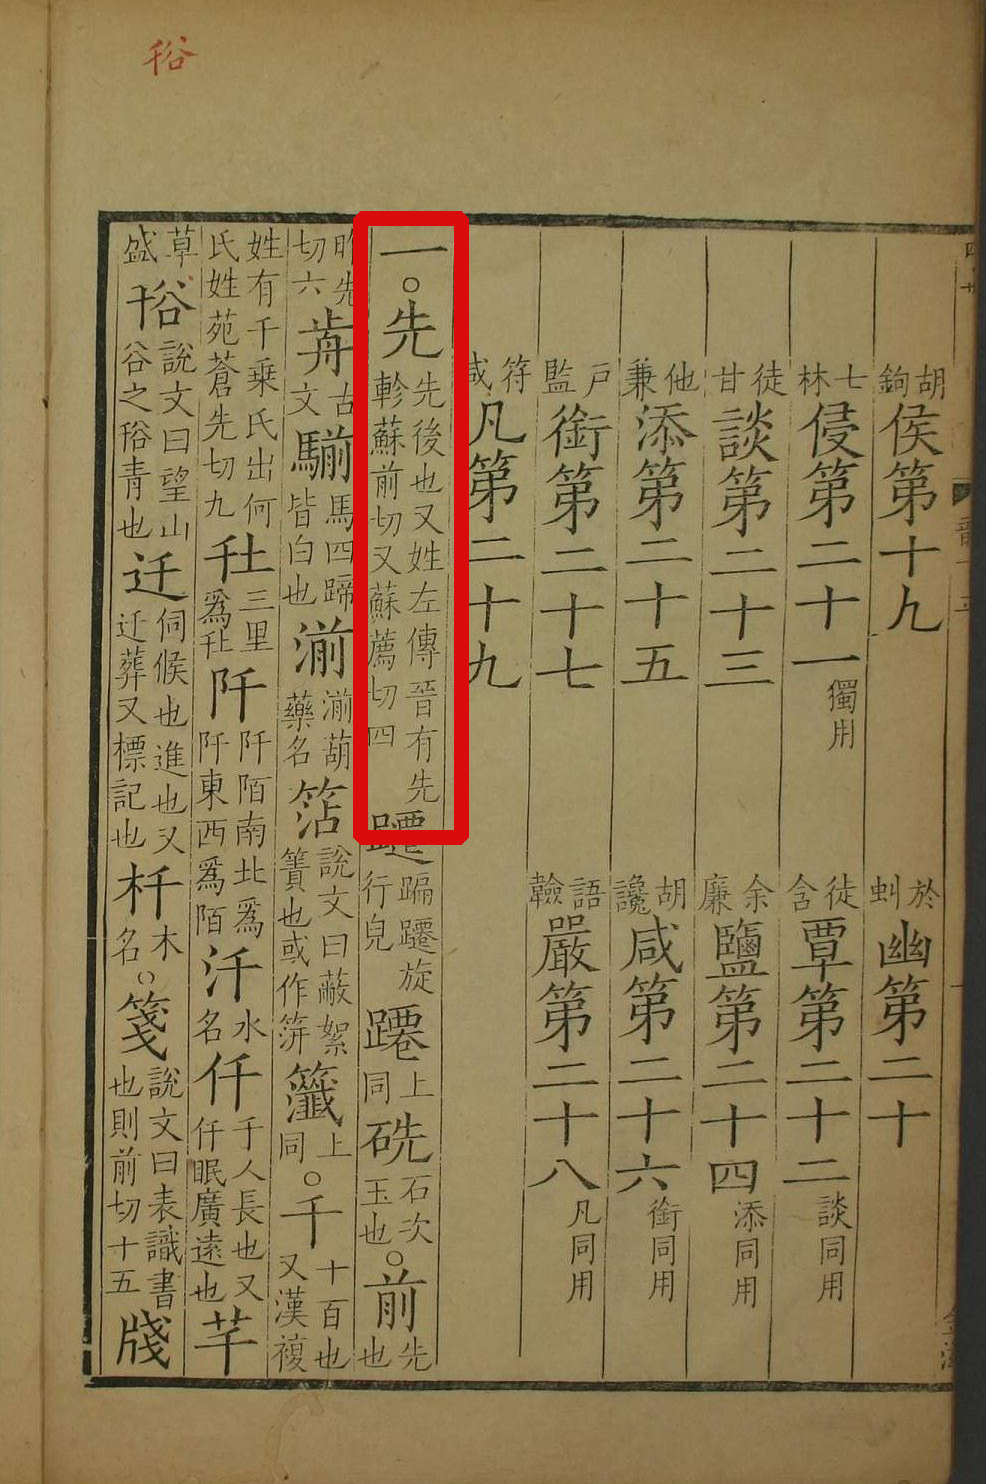 谸
胡鉤侯第十九 於虯幽第二十
七林侵第二十一獨用 徒含覃第二十二談同用
徒甘談第二十三 余廉鹽第二十四添同用
他兼添第二十五 胡讒咸第二十六銜同用
戶監銜第二十七 語嚴第二十八凡同用
符咸凡第二十九
一。先先後也又姓左傳晉有先軫蘇前切又蘇薦切四躚蹁躚旋行皃蹮上同石次玉也。前先也
昨先切六歬古文騚馬四蹄皆白也湔湔葫藥名說文曰蔽絮簀也或作籤上同。千十百也又漢複
姓有千乘氏出何氏姓苑蒼先切九圱三里爲圱阡阡陌南北爲阡東西爲陌汘水名仟千人長也又仟眠廣遠也芊
草盛谸說文曰望山谷之谸青也迁伺候也進也又迁葬又標記也杄木名。箋說文曰表識書也則前切十五牋